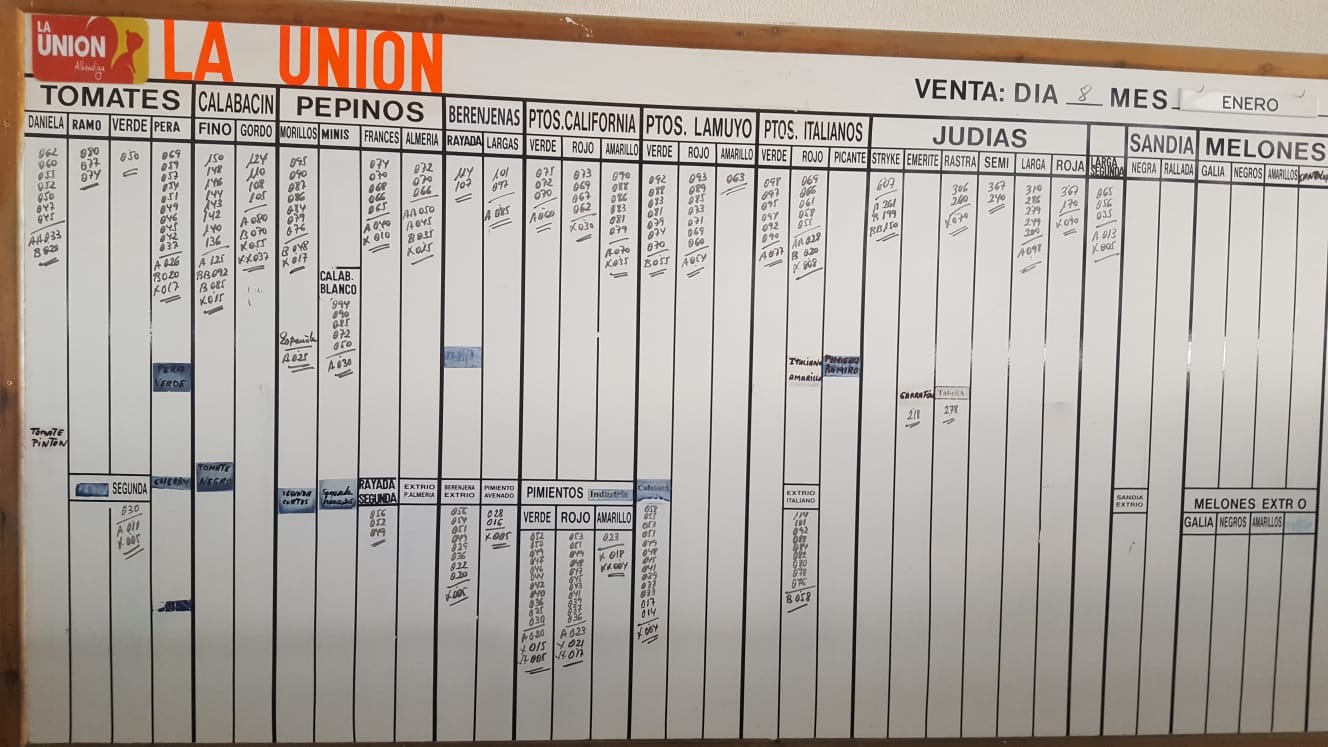 LA UNION Alhóndiga
LA UNION
VENTA: DIA 8 MES ENERO
TOMATES CALABACIN PEPINOS BERENJENAS PTOS.CALIFORNIA PTOS. LAMUYO PTOS. ITALIANOS JUDIAS SANDIA MELONES
DANIELA RAMO VERDE PERA FINO GORDO MORILLOS MINIS FRANCES ALMERIA RAYADA LARGAS VERDE ROJO AMARILLO VERDE ROJO AMARILLO VERDE ROJO PICANTE STRYKE EMERITE RASTRA SEMI LARGA ROJA LARGA SEGUNDA NEGRA RALLADA GALIA NEGROS AMARILLOS
062
060
055
052
050
047
045
AA033
B020
080
077
074
050
069
059
057
054
051
049
046
045
042
037
A026
B020
X017
150
148
146
144
143
142
140
136
A125
BB092
B085
X015
124
110
108
105
A080
B070
X055
XX037
095
090
087
086
084
079
076
B048
X017
CALAB.
BLANCO
094
090
085
072
050
A030
Española
A025
074
070
068
066
065
A040
X010
072
070
066
AA050
A045
B035
X025
114
107
101
097
A085
075
072
070
A060
073
069
067
062
X030
090
088
086
083
081
079
A070
X035
092
088
083
081
079
074
070
B055
093
089
085
073
071
069
060
A054
063
098
097
095
094
092
090
A077
069
066
061
058
055
AA028
B020
X008
607
A261
B199
BB150
306
260
X070
367
240
310
286
279
249
200
A098
367
170
X090
065
056
035
A013
X005
PERA
VERDE
ITALIANO
AMARILLO
PIMIENTO
RAMIRO
GARRAFON
218
TabellA
278
TOMATE
PINTON
SEGUNDA
030
A010
X005
CHERRY
TOMATE
NEGRO
SEGUNDA
CORTOS
Segunda
RAYADA
SEGUNDA
056
052
049
EXTRIO
P.ALMERIA
BERENJENA
EXTRIO
056
054
051
049
039
036
022
020
X005
PIMIENTO
AVENADO
028
016
X005
PIMIENTOS Industria
VERDE ROJO AMARILLO
052
050
049
047
046
044
042
040
036
035
030
A020
X015
053
051
049
048
047
045
043
041
039
037
036
A023
X021
023
X018
XX004
058
055
053
051
049
048
045
041
039
037
033
017
014
X004
EXTRIO
ITALIANO
114
101
092
088
084
082
080
078
076
B058
SANDIA
EXTRIO
MELONES EXTR O
GALIA NEGROS AMARILLOS